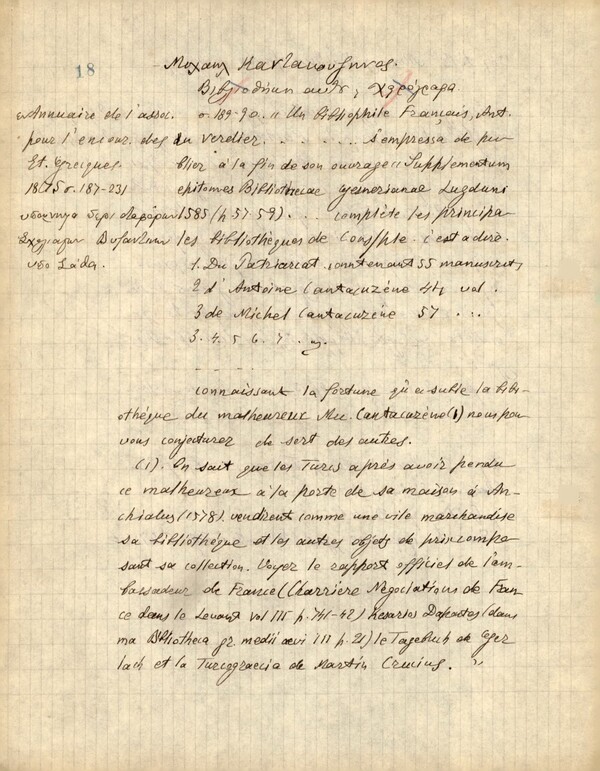 18
Μιχαηλ Καντακουζηνος.
Βιβλιοθήκη αυτου, χειρόγραφα
εν Annuaire de l'assoc.
pour l'encour. des
Et. Grecques
1875 σ. 187-231
υπόμνημα περι διαφόρων
Σχολιαστων Βυζαντινων
υπο Σάθα.
σ. 189-90. « Un bibliophile Français, Ant.
du Verdier . . . . . . s'empressa de pu-
blier à la fin de son ouvrage « Supplementum
epitomes Bibliothecae gesnerianae Lugduni
1585 (p. 57-59). . . complète les principa-
les bibliothèques de Cons/ple. c'est a dire.
1. Du Patriarcat contenant 55 manuscrits
2 d'Antoine Cantacuzène 44 vol.
3 de Michel Cantacuzène 57 . . .
3. 4. 5 6. 7 . .
- - - - -
connaissant la fortune qu'a subie la bibli-
othèque du malheureux Mic. Cantacuzène (1) nous pou-
vons conjecturer de sort des autres.
(1). On sait que les Turcs après avoir pendu
ce malheureux à la porte de sa maison à An-
chialus (1578) vendirent comme une vile marchandise
sa bibliothèque et les autres objets de prix compo-
sant sa collection. Voyez le rapport officiel de l'am-
bassadeur de France (Charrière Négociations de Fran-
ce dans le Levant vol III p. 741-42) Kesarios Dapontes (dans
ma Bibliotheca gr. medii aevi III p. 21) le Tagebuch de Ger
lach et la Turcograecia de Martin Crusius. »